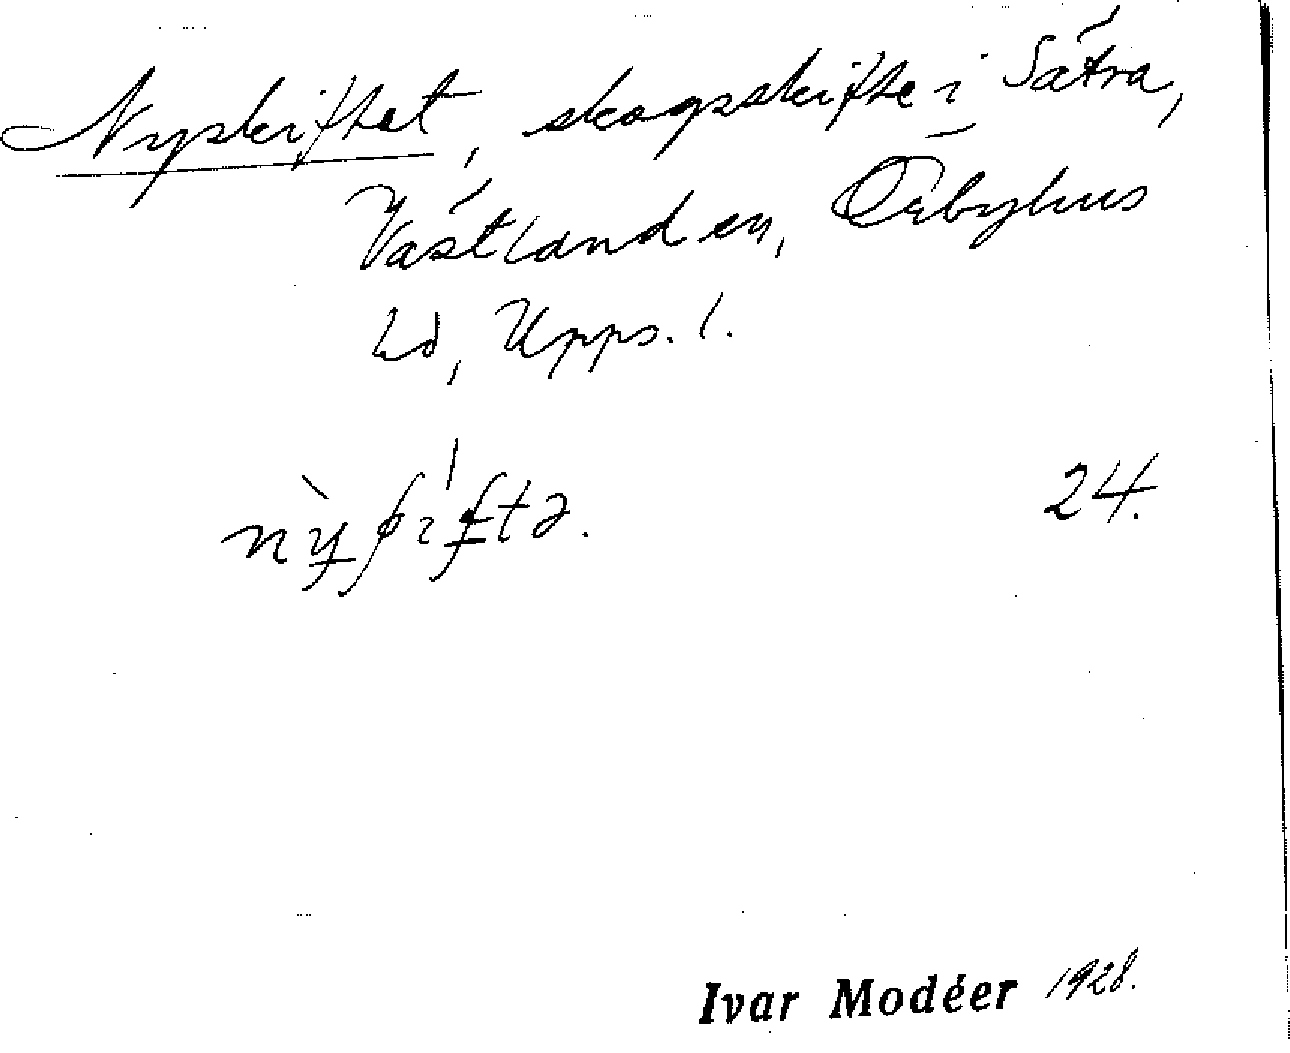 Nyskiftet, skogsskifte i Sätra,
Västland sn, Örbyhus
hd, Upps. l.
24.
Ivar Modéer 1928.